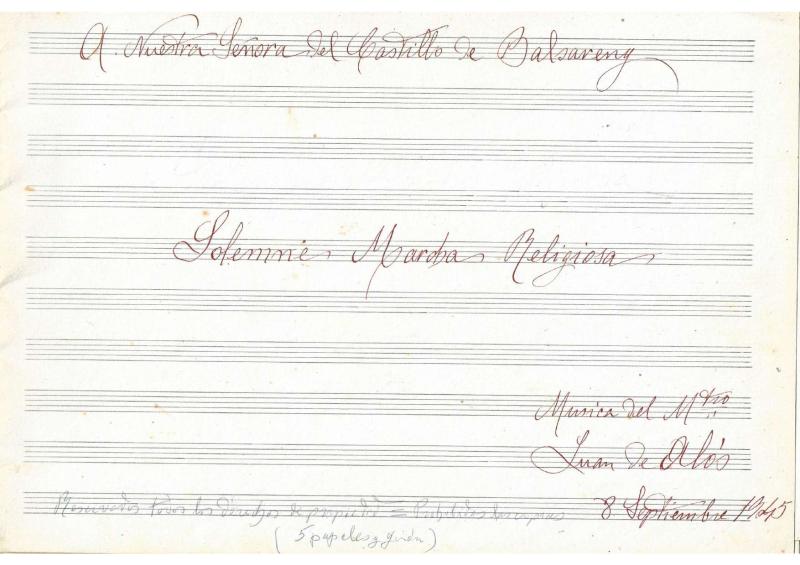 A. Nuestra Señora del Castillo de Balsareny
Solemne Marcha Religiosa
Musica del Mtro
Juan de Alós
8 Septiembre 1945
Reservados todos los derechos de propiedad = Prohibidas las copias
(5 papeles y guión)